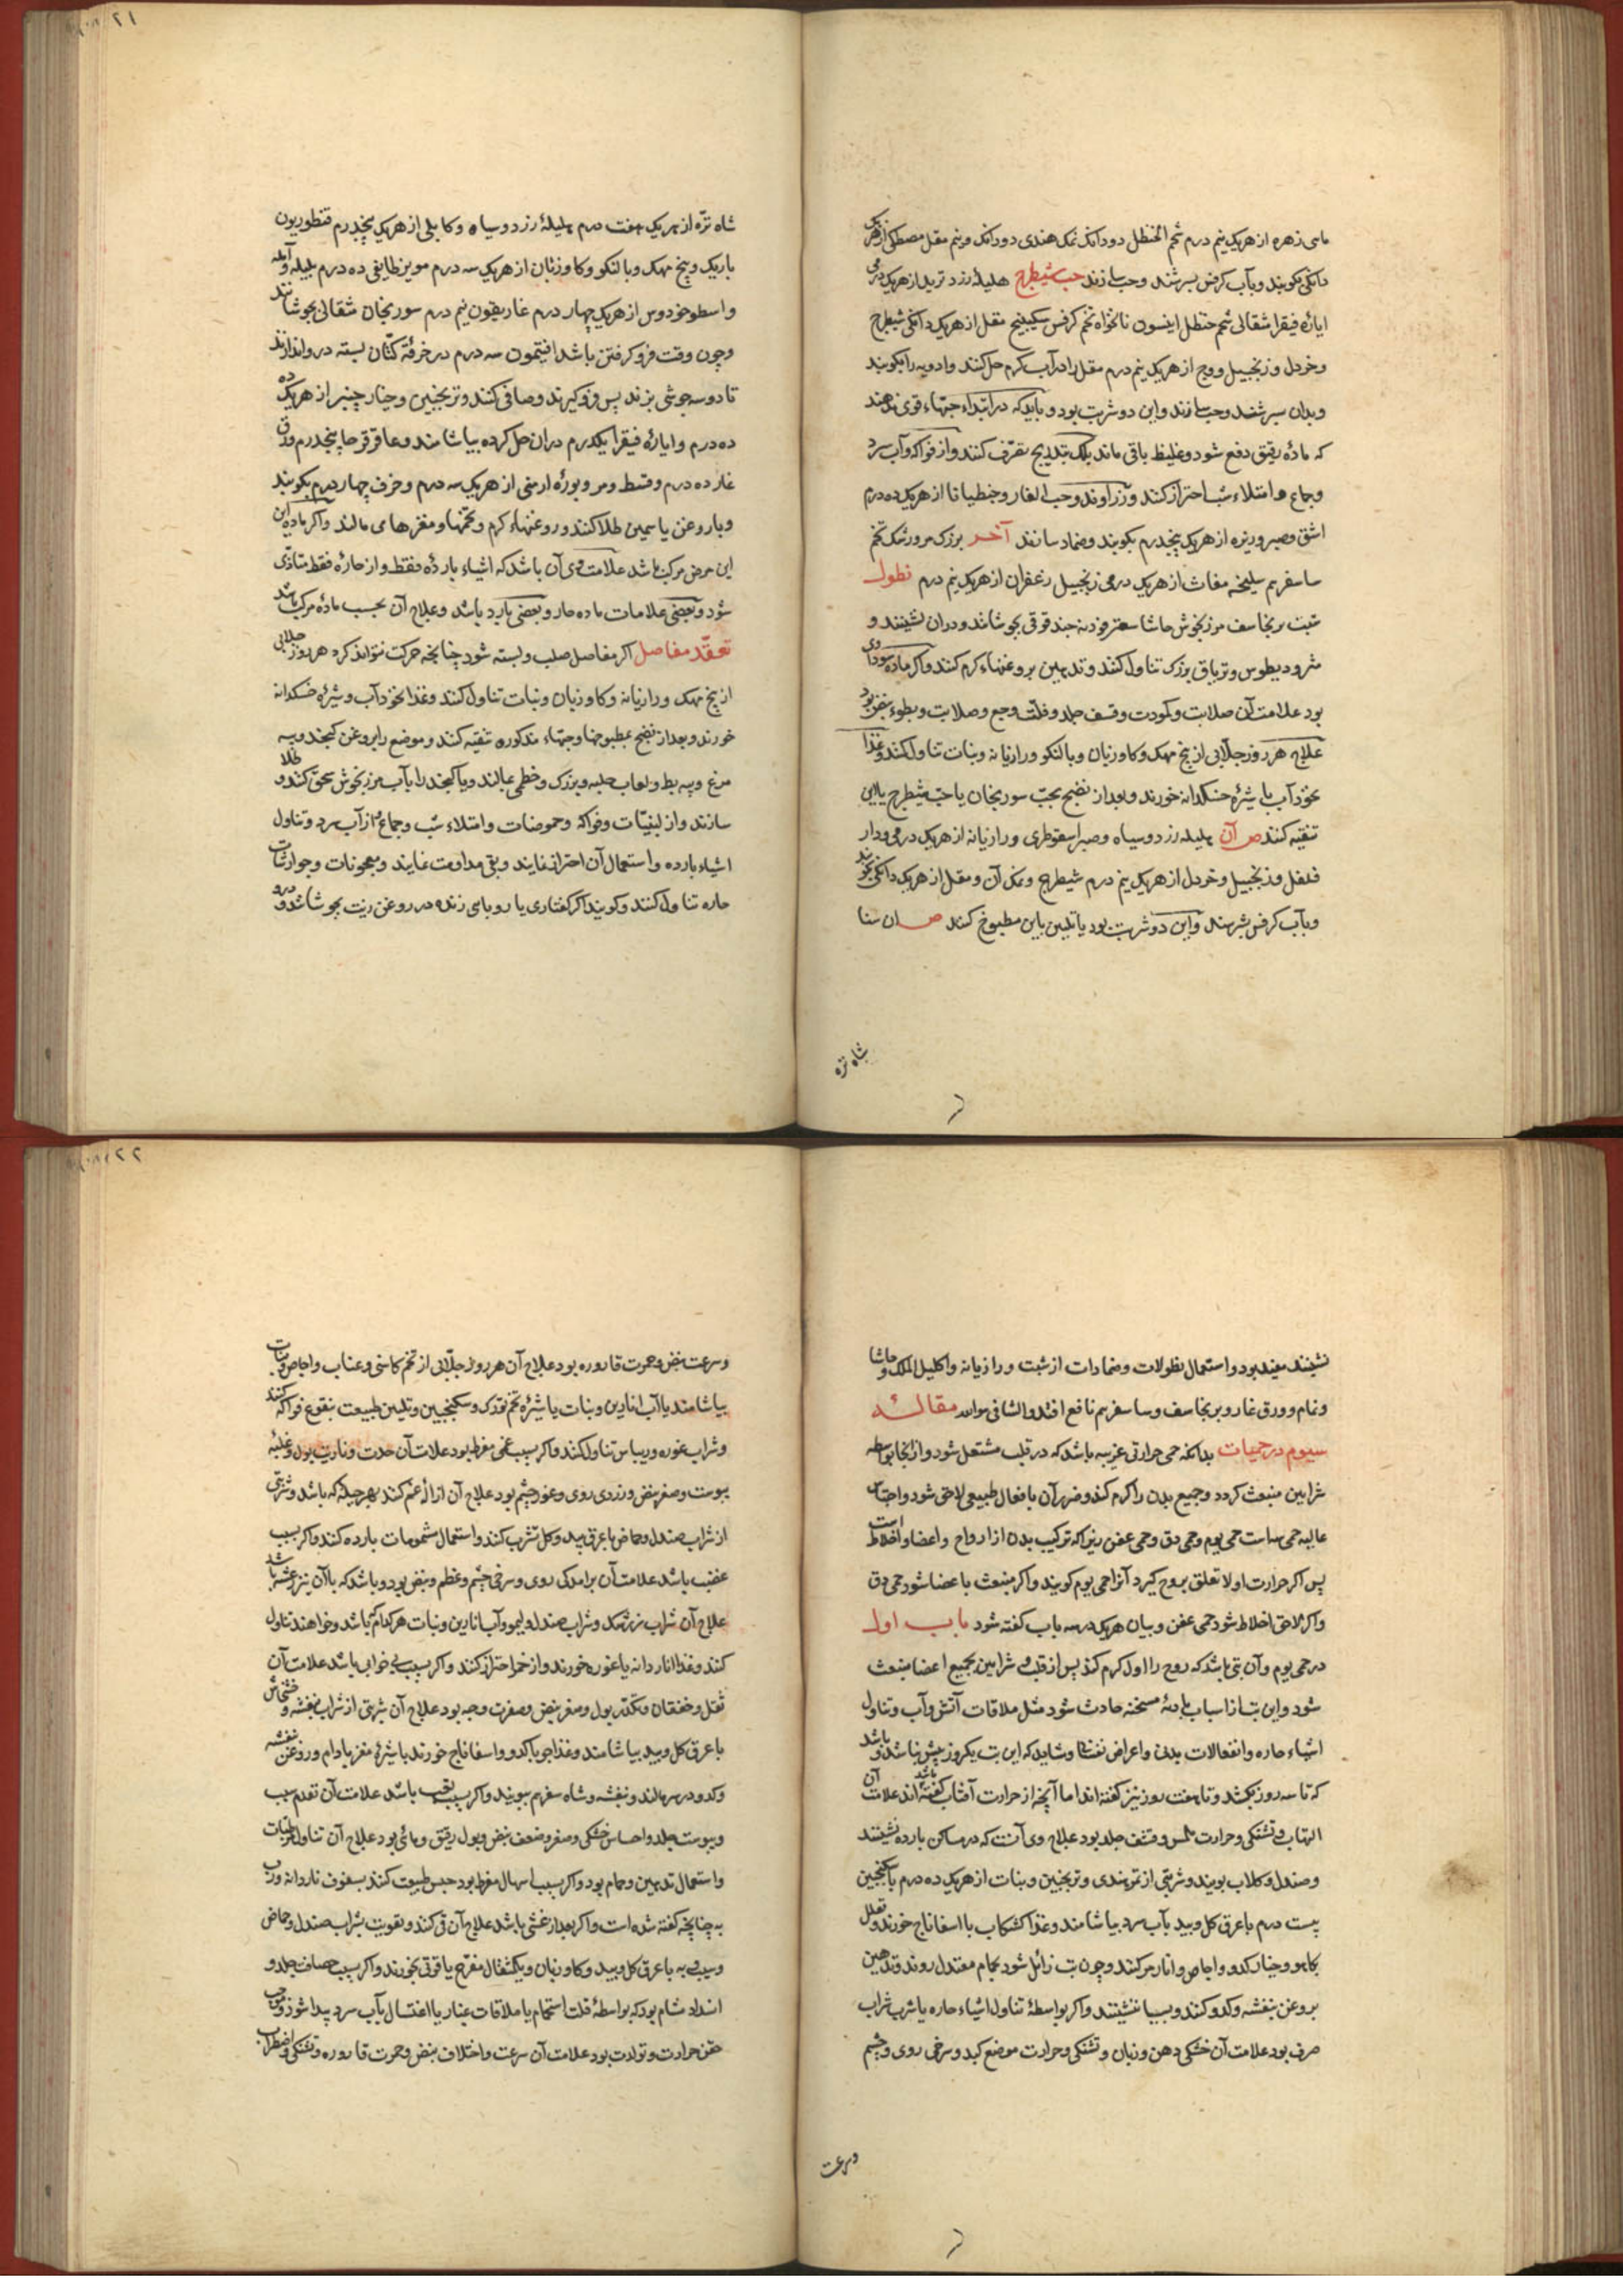 ماهی زهره از هریک نیم درم شحم الحنظل دو دانک نمک هندی دو دانک و نیم مقل مصطکی از هریک
دانکی بکوبند و بآب کرفس بسرشند و حب سازند حب شیطرج هلیله زرد تربد از هریک درمی
ایاره فیقرا مثقالی شحم حنظل انیسون نانخواه تخم کرفس سکبینج مقل از هریک دانکی شیطرج
و خردل و زنجبیل و وج از هریک نیم درم مقل را در آب کرم حل کنند و ادویه را بکوبند
و بدان سرشند و حب سازند و این دو شربت بود و باید که در ابتداء حبهاء قوی ندهند
که ماده رقیق دفع شود و غلیظ باقی ماند بلک بتدریج تصرف کنند و از فواکه و آب سرد
و جماع و امتلاء شب احتراز کنند و زراوند و حب الغار و جنطیانا از هریک ده درم
اشق و صبر و ریزه از هریک پنجدرم بکوبند و ضماد سازند آخر بزرک مرورشک تخم
سا سفرم سلیخه مغاث از هریک درمی زنجبیل زعفران از هریک نیم درم نطول
شبت برنجاسف مرزنجوش حاشا سعتر فودنه جندقوقی بجوشانند و دران نشینند و
مثرودیطوس و تریاق بزرک تناول کنند و تدهین بروغنهاء کرم کنند و اگر ماده سوداوی
بود علامت آن صلابت و کمودت و قشف جلد و قلت وجع و صلابت و بطوء نبض بود
علاج هر روز جلابی از بیخ مهک و کاوزبان و بالنکو و رازیانه و نبات تناول کنند و غذا
نخودآب با شیره خسکدانه خورند و بعد از نضج بحب سورنجان یا حب شیطرج یا این
تنقیه کنند ص آن هلیله زرد و سیاه و صبر اسقوطری و رازیانه از هریک درمی و دار
فلفل و زنجبیل و خردل از هریک نیم درم شیطرج و نمک آن و مقل از هریک دانکی بکوبند
و بآب کرفس بسرشند و این دو شربت بود یا تلیین باین مطبوخ کنند ص ان سنا
شاه تره
شاه تره از هریک هفت درم هلیلهٔ زرد و سیاه و کابلی از هریک پنجدرم قنطوریون
باریک و بیخ مهک و بالنکو و کاوزبان از هریک سه درم مویز طایفی ده درم بلیله و آمله
و اسطوخودوس از هریک چهار درم غاریقون نیم درم سورنجان مثقالی بجوشانند
و چون وقت فرو کرفتن باشد افتیمون سه درم در خرقهٔ کتان بسته در و اندازند
تا دو سه جوشی بزند پس فرو کیرند و صافی کنند و ترنجبین و خیار چنبر از هریک ده
ده درم و ایارهٔ فیقرا یکدرم دران حل کرده بیاشامند و عاقرقرحا پنجدرم ورق
غار ده درم و قسط و مر و بورهٔ ارمنی از هریک سه درم و خرف چهار درم بکوبند
و با روغن یاسمین طلا کنند و روغنهاء کرم و تخمها و مغزها می مالند و اگر ماده این
این مرض مرکب باشد علامت وی آن باشد که اشیاء بارده فقط و از حاره فقط متاذی
شود و بعضی علامات ماده حار و بعضی بارد باشد و علاج آن بحسب مادهٔ مرکب باشد
تعقّد مفاصل اکر مفاصل صلب و بسته شود چنانچه حرکت نتواند کرد هر روز جلابی
از بیخ مهک و رازیانه و کاوزبان و نبات تناول کنند و غذا نخودآب و شیرهٔ خسکدانه
خورند و بعد از نضج بمطبوخها و حبهاء مذکوره تنقیه کنند و موضع را بروغن کنجد و پیه
مرغ و پیه بط و لعاب حلبه و بزرک و خطمی بمالند و یا کنجد را بآب مرزنجوش سحق کنند و طلا
سازند و از لبنیات و فواکه و حموضات و امتلاء شب و جماع و از آب سرد و تناول
اشیاء بارده و استعمال آن احتراز نمایند و بقی مداومت نمایند و معجونات و جوارشات
حاره تناول کنند و کویند اکر کفتاری یا روباهی زنده در روغن زیت بجوشانند و درو
نشینند مفید بود و استعمال نطولات و ضمادات از شبت و رازیانه و اکلیل الملک و حاشا
و نمام و ورق غار و برنجاسف و سا سفرم نافع افتد و الشافی هو الله مقالهٔ
سیوم در حمیات بدانکه حمی حرارتی غریبه باشد که در قلب مشتعل شود و از انجا بواسطه
شرایین منبعث کردد و جمیع بدن را کرم کند و ضرر آن بافعال طبیعی لاحق شود و اجناس
عالیه حمی سه است حمی یوم و حمی دق و حمی عفن زیرا که ترکیب بدن از ارواح و اعضا و اخلاط است
پس اکر حرارت اولا تعلق بروح کیرد آنرا حمی یوم کویند و اکر منبعث باعضا شود حمی دق
و اکر لاحق اخلاط شود حمی عفن و بیان هریک در سه باب کفته شود باب اول
در حمی یوم و آن تبی باشد که روح را اول کرم کند پس از قلب و شرایین بجمیع اعضا منبعث
شود و این تب از اسباب بادیهٔ مسخنه حادث شود مثل ملاقات آتش و آب و تناول
اشیاء حاره و انفعالات بدنی و اعراض نفسانی و شاید که این تب یکروز بیش نباشد و باشد
که تا سه روز بکشد و تا هفت روز نیز کفته اند اما آنچه از حرارت آفتاب باشد کفته اند علامت آن
التهاب و تشنکی و حرارت ملمس و قشف جلد بود علاج وی آنست که در مساکن بارده نشینند
و صندل و کلاب بویند و شربتی از تمرهندی و ترنجبین و نبات از هریک ده درم با سکنجبین
بیست درم با عرق کل و بید بآب سرد بیاشامند و غذا کشکاب با اسفاناج خورند و تعلل
بکاهو و خیار کدو و اجاص و انار مز کنند و چون تب زائل شود بحمام معتدل روند و تدهین
بروغن بنفشه و کدو کنند و بسیار ننشینند و اکر بواسطهٔ تناول اشیاء حاره یا شرب شراب
صرف بود علامت آن خشکی دهن و زبان و تشنکی و حرارت موضع کبد و سرخی روی و چشم
و سرعت
و سرعت نبض و حمرت قاروره بود علاج آن هر روز جلابی از تخم کاسنی و عناب و اجاص و نبات
بیاشامند یا آب انارین و نبات یا شیرهٔ تخم تورک و سکنجبین و تلیین طبیعت بنقوع فواکه کنند
و شراب غوره و ریباس تناول کنند و اکر بسبب غمی مفرط بود علامت آن حدت و ناریت بول و غلبه
یبوست و صغر نبض و زردی روی و غور چشم بود علاج آن ازالهٔ غم کنند بهر حیله که باشد و شربتی
از شراب صندل و حماض با عرق بید و کل شرب کنند و استعمال مشمومات بارده کنند و اکر بسبب
غضب باشد علامت آن برآمدکی روی و سرخی چشم و عظم و نبض بود و باشد که با آن نیز رعشه باشد
علاج آن شراب زرشک و شراب صندل و لیمو و آب انارین و نبات هر کدام که باشد و خواهند تناول
کنند و غذا اناردانه یا غوره خورند و از خمر احتراز کنند و اکر بسبب بی خوابی باشد علامت آن
ثقل و خفقان و تکدر بول و صغر نبض و صفرت وجه بود علاج آن شربتی از شراب بنفشه و خشخاش
با عرق کل و بید بیاشامند و غذا جو با کدو و اسفاناج خورند با شیرهٔ مغز بادام و روغن بنفشه
و کدو در سر مالند و بنفشه و شاه سفرم ببویند و اکر بسبب تعب باشد علامت آن تقدم سبب
و یبوست جلد و احساس خشکی و صغر و ضعف نبض و بول رقیق و مائی بود علاج آن تناول مرطبات
و استعمال تدهین و حمام بود و اکر بسبب اسهال مفرط بود حبس طبیعت کنند بسفوف ناردانه و رب
به چنانچه کفته شده است و اکر بعد از غشی باشد علاج آن قی کنند و تقویت بشراب صندل و حماض
و سیب و به با عرق کل و بید و کاوزبان و یکمثقال مفرح یاقوتی بخورند و اکر بسبب حصافت جلد و
انسداد مسام بود که بواسطهٔ قلت استحمام یا ملاقات غبار یا اغتسال بآب سرد پیدا شود و موجب
حقن حرارت و تولدت بود علامت آن سرعت و اختلاف نبض و حمرت قاروره و تشنکی و اضطراب